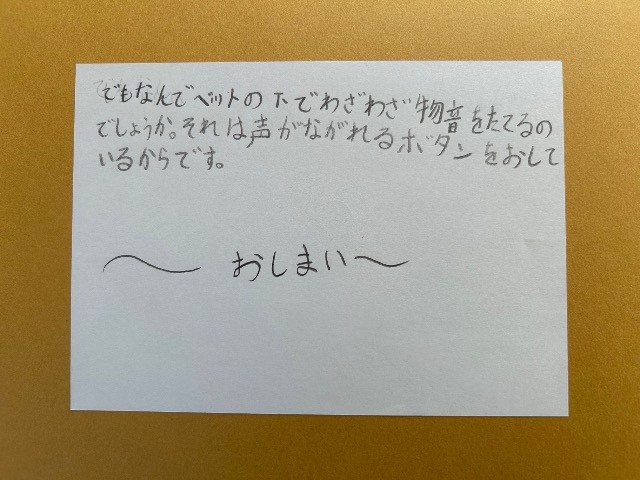 でもなんでベットの下でわざわざ物音をたてるの
でしょうか。それは声がながれるボタンをおして
いるからです。
〜 おしまい〜